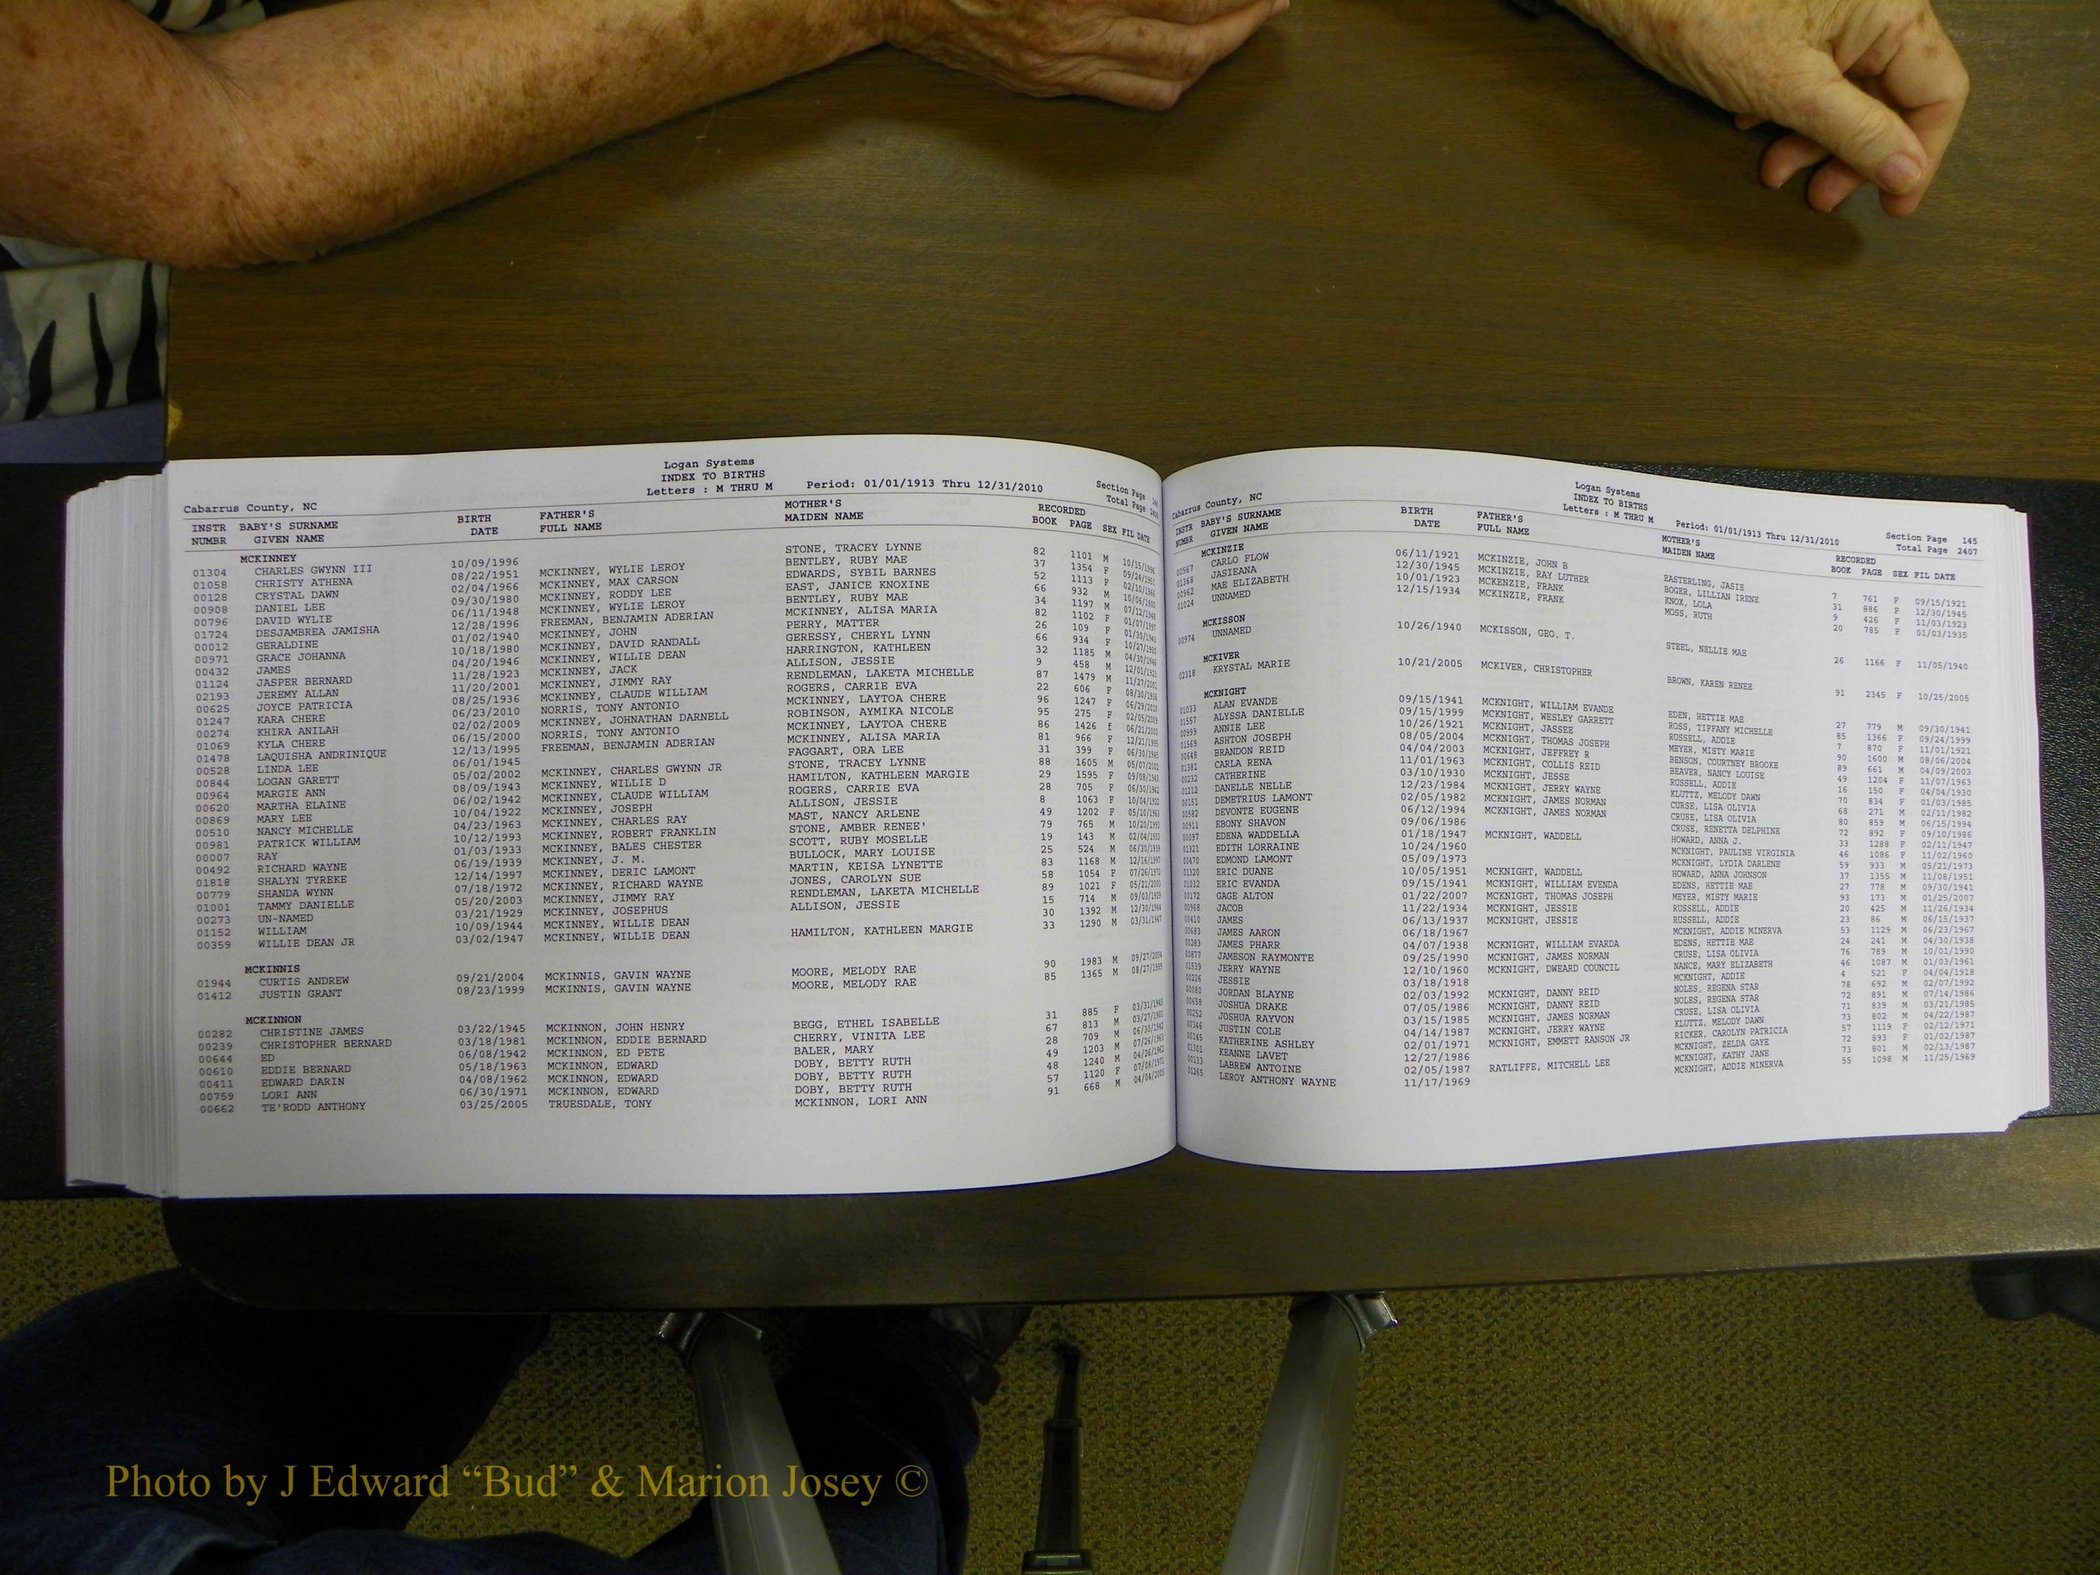 Logan Systems
INDEX TO BIRTHS
Cabarrus County, NC Letters : M THRU M Period: 01/01/1913 Thru 12/31/2010 Section Page
Total Page
INSTR BABY'S SURNAME BIRTH FATHER'S MOTHER'S RECORDED
NUMBR GIVEN NAME DATE FULL NAME MAIDEN NAME BOOK PAGE SEX FIL DATE
MCKINNEY
01304 CHARLES GWYNN III 10/09/1996 STONE, TRACEY LYNNE 82 1101 M 10/15/1996
01058 CHRISTY ATHENA 08/22/1951 MCKINNEY, WYLIE LEROY BENTLEY, RUBY MAE 37 1354 F 09/24/1951
00128 CRYSTAL DAWN 02/04/1966 MCKINNEY, MAX CARSON EDWARDS, SYBIL BARNES 52 1113 F 02/10/1966
00908 DANIEL LEE 09/30/1980 MCKINNEY, RODDY LEE EAST, JANICE KNOXINE 66 932 M 10/06/1980
00796 DAVID WYLIE 06/11/1948 MCKINNEY, WYLIE LEROY BENTLEY, RUBY MAE 34 1197 M 07/12/1948
01724 DESJAMBREA JAMISHA 12/28/1996 FREEMAN, BENJAMIN ADERIAN MCKINNEY, ALISA MARIA 82 1102 F 01/07/1997
00012 GERALDINE 01/02/1940 MCKINNEY, JOHN PERRY, MATTER 26 109 F 01/30/1940
00971 GRACE JOHANNA 10/18/1980 MCKINNEY, DAVID RANDALL GERESSY, CHERYL LYNN 66 934 F 10/27/1980
00432 JAMES 04/20/1946 MCKINNEY, WILLIE DEAN HARRINGTON, KATHLEEN 32 1185 M 04/30/1946
01124 JASPER BERNARD 11/28/1923 MCKINNEY, JACK ALLISON, JESSIE 9 458 M 12/01/1923
02193 JEREMY ALLAN 11/20/2001 MCKINNEY, JIMMY RAY RENDLEMAN, LAKETA MICHELLE 87 1479 M 11/27/2001
00625 JOYCE PATRICIA 08/25/1936 MCKINNEY, CLAUDE WILLIAM ROGERS, CARRIE EVA 22 606 F 08/30/1936
01247 KARA CHERE 06/23/2010 NORRIS, TONY ANTONIO MCKINNEY, LAYTOA CHERE 96 1247 F 06/29/2010
00274 KHIRA ANILAH 02/02/2009 MCKINNEY, JOHNATHAN DARNELL ROBINSON, AYMIKA NICOLE 95 275 F 02/05/2009
01069 KYLA CHERE 06/15/2000 NORRIS, TONY ANTONIO MCKINNEY, LAYTOA CHERE 86 1426 f 06/21/2000
01478 LAQUISHA ANDRINIQUE 12/13/1995 FREEMAN, BENJAMIN ADERIAN MCKINNEY, ALISA MARIA 81 966 F 12/21/1995
00528 LINDA LEE 06/01/1945 FAGGART, ORA LEE 31 399 F 06/30/1945
00844 LOGAN GARETT 05/02/2002 MCKINNEY, CHARLES GWYNN JR STONE, TRACEY LYNNE 88 1605 M 05/07/2002
00964 MARGIE ANN 08/09/1943 MCKINNEY, WILLIE D HAMILTON, KATHLEEN MARGIE 29 1595 F 09/08/1943
00620 MARTHA ELAINE 06/02/1942 MCKINNEY, CLAUDE WILLIAM ROGERS, CARRIE EVA 28 705 F 06/30/1942
00869 MARY LEE 10/04/1922 MCKINNEY, JOSEPH ALLISON, JESSIE 8 1063 F 10/04/1922
00510 NANCY MICHELLE 04/23/1963 MCKINNEY, CHARLES RAY MAST, NANCY ARLENE 49 1202 F 05/10/1963
00981 PATRICK WILLIAM 10/12/1993 MCKINNEY, ROBERT FRANKLIN STONE, AMBER RENEE' 79 765 M 10/20/1993
00007 RAY 01/03/1933 MCKINNEY, BALES CHESTER SCOTT, RUBY MOSELLE 19 143 M 02/04/1933
00492 RICHARD WAYNE 06/19/1939 MCKINNEY, J. M. BULLOCK, MARY LOUISE 25 524 M 06/30/1939
01818 SHALYN TYREKE 12/14/1997 MCKINNEY, DERIC LAMONT MARTIN, KEISA LYNETTE 83 1168 M 12/16/1997
00779 SHANDA WYNN 07/18/1972 MCKINNEY, RICHARD WAYNE JONES, CAROLYN SUE 58 1054 F 07/26/1972
01001 TAMMY DANIELLE 05/20/2003 MCKINNEY, JIMMY RAY RENDLEMAN, LAKETA MICHELLE 89 1021 F 05/21/2003
00273 UN-NAMED 03/21/1929 MCKINNEY, JOSEPHUS ALLISON, JESSIE 15 714 M 09/03/1929
01152 WILLIAM 10/09/1944 MCKINNEY, WILLIE DEAN 30 1392 M 12/30/1944
00359 WILLIE DEAN JR 03/02/1947 MCKINNEY, WILLIE DEAN HAMILTON, KATHLEEN MARGIE 33 1290 M 03/31/1947
MCKINNIS
01944 CURTIS ANDREW 09/21/2004 MCKINNIS, GAVIN WAYNE MOORE, MELODY RAE 90 1983 M 09/27/2004
01412 JUSTIN GRANT 08/23/1999 MCKINNIS, GAVIN WAYNE MOORE, MELODY RAE 85 1365 M 08/27/1999
MCKINNON
00282 CHRISTINE JAMES 03/22/1945 MCKINNON, JOHN HENRY BEGG, ETHEL ISABELLE 31 885 F 03/31/1945
00239 CHRISTOPHER BERNARD 03/18/1981 MCKINNON, EDDIE BERNARD CHERRY, VINITA LEE 67 813 M 03/27/1981
00644 ED 06/08/1942 MCKINNON, ED PETE BALER, MARY 28 709 M 06/30/1942
00610 EDDIE BERNARD 05/18/1963 MCKINNON, EDWARD DOBY, BETTY RUTH 49 1203 M 07/26/1963
00411 EDWARD DARIN 04/08/1962 MCKINNON, EDWARD DOBY, BETTY RUTH 48 1240 M 04/26/1962
00759 LORI ANN 06/30/1971 MCKINNON, EDWARD DOBY, BETTY RUTH 57 1120 F 07/08/1971
00662 TE'RODD ANTHONY 03/25/2005 TRUESDALE, TONY MCKINNON, LORI ANN 91 668 M 04/04/2005
Logan Systems
INDEX TO BIRTHS
Cabarrus County, NC Letters : M THRU M Period: 01/01/1913 Thru 12/31/2010 Section Page 145
Total Page 2407
INSTR BABY'S SURNAME BIRTH FATHER'S MOTHER'S RECORDED
NUMBR GIVEN NAME DATE FULL NAME MAIDEN NAME BOOK PAGE SEX FIL DATE
MCKINZIE
00567 CARLO FLOW 06/11/1921 MCKINZIE, JOHN B EASTERLING, JASIE 7 761 F 09/15/1921
01368 JASIEANA 12/30/1945 MCKINZIE, RAY LUTHER BOGER, LILLIAN IRENE 31 886 F 12/30/1945
00962 MAE ELIZABETH 10/01/1923 MCKENZIE, FRANK KNOX, LOLA 9 426 F 11/03/1923
01024 UNNAMED 12/15/1934 MCKINZIE, FRANK MOSS, RUTH 20 785 F 01/03/1935
MCKISSON
00974 UNNAMED 10/26/1940 MCKISSON, GEO. T. STEEL, NELLIE MAE 26 1166 F 11/05/1940
MCKIVER
02318 KRYSTAL MARIE 10/21/2005 MCKIVER, CHRISTOPHER BROWN, KAREN RENEE 91 2345 F 10/25/2005
MCKNIGHT
01033 ALAN EVANDE 09/15/1941 MCKNIGHT, WILLIAM EVANDE EDEN, HETTIE MAE 27 779 M 09/30/1941
01557 ALYSSA DANIELLE 09/15/1999 MCKNIGHT, WESLEY GARRETT ROSS, TIFFANY MICHELLE 85 1366 F 09/24/1999
00999 ANNIE LEE 10/26/1921 MCKNIGHT, JASSEE RUSSELL, ADDIE 7 870 F 11/01/1921
01569 ASHTON JOSEPH 08/05/2004 MCKNIGHT, THOMAS JOSEPH MEYER, MISTY MARIE 90 1600 M 08/06/2004
00648 BRANDON REID 04/04/2003 MCKNIGHT, JEFFREY R BENSON, COURTNEY BROOKE 89 661 M 04/09/2003
01381 CARLA RENA 11/01/1963 MCKNIGHT, COLLIS REID BEAVER, NANCY LOUISE 49 1204 F 11/07/1963
00232 CATHERINE 03/10/1930 MCKNIGHT, JESSE RUSSELL, ADDIE 16 150 F 04/04/1930
01212 DANELLE NELLE 12/23/1984 MCKNIGHT, JERRY WAYNE KLUTTZ, MELODY DAWN 70 834 F 01/03/1985
00151 DEMETRIUS LAMONT 02/05/1982 MCKNIGHT, JAMES NORMAN CURSE, LISA OLIVIA 68 271 M 02/11/1982
00582 DEVONTE EUGENE 06/12/1994 MCKNIGHT, JAMES NORMAN CRUSE, LISA OLIVIA 80 859 M 06/15/1994
00911 EBONY SHAVON 09/06/1986 CRUSE, RENETTA DELPHINE 72 892 F 09/10/1986
00097 EDENA WADDELLA 01/18/1947 MCKNIGHT, WADDELL HOWARD, ANNA J. 33 1288 F 02/11/1947
01321 EDITH LORRAINE 10/24/1960 MCKNIGHT, PAULINE VIRGINIA 46 1086 F 11/02/1960
00470 EDMOND LAMONT 05/09/1973 MCKNIGHT, LYDIA DARLENE 59 933 M 05/21/1973
01320 ERIC DUANE 10/05/1951 MCKNIGHT, WADDELL HOWARD, ANNA JOHNSON 37 1355 M 11/08/1951
01032 ERIC EVANDA 09/15/1941 MCKNIGHT, WILLIAM EVENDA EDENS, HETTIE MAE 27 778 M 09/30/1941
00172 GAGE ALTON 01/22/2007 MCKNIGHT, THOMAS JOSEPH MEYER, MISTY MARIE 93 173 M 01/25/2007
00968 JACOB 11/22/1934 MCKNIGHT, JESSIE RUSSELL, ADDIE 20 425 M 11/26/1934
00410 JAMES 06/13/1937 MCKNIGHT, JESSIE RUSSELL, ADDIE 23 86 M 06/15/1937
00683 JAMES AARON 06/18/1967 MCKNIGHT, ADDIE MINERVA 53 1129 M 06/23/1967
00283 JAMES PHARR 04/07/1938 MCKNIGHT, WILLIAM EVARDA EDENS, HETTIE MAE 24 241 M 04/30/1938
00877 JAMESON RAYMONTE 09/25/1990 MCKNIGHT, JAMES NORMAN CRUSE, LISA OLIVIA 76 789 M 10/01/1990
01539 JERRY WAYNE 12/10/1960 MCKNIGHT, DWEARD COUNCIL NANCE, MARY ELIZABETH 46 1087 M 01/03/1961
00226 JESSIE 03/18/1918 MCKNIGHT, ADDIE 4 521 F 04/04/1918
00080 JORDAN BLAYNE 02/03/1992 MCKNIGHT, DANNY REID NOLES, REGENA STAR 78 692 M 02/07/1992
00658 JOSHUA DRAKE 07/05/1986 MCKNIGHT, DANNY REID NOLES, REGENA STAR 72 891 M 07/14/1986
00252 JOSHUA RAYVON 03/15/1985 MCKNIGHT, JAMES NORMAN CRUSE, LISA OLIVIA 71 839 M 03/21/1985
00346 JUSTIN COLE 04/14/1987 MCKNIGHT, JERRY WAYNE KLUTTZ, MELODY DAWN 73 802 M 04/22/1987
00145 KATHERINE ASHLEY 02/01/1971 MCKNIGHT, EMMETT RANSON JR RICKER, CAROLYN PATRICIA 57 1119 F 02/12/1971
01301 KEANNE LAVET 12/27/1986 MCKNIGHT, ZELDA GAYE 72 893 F 01/02/1987
00133 LABREW ANTOINE 02/05/1987 RATLIFFE, MITCHELL LEE MCKNIGHT, KATHY JANE 73 801 M 02/13/1987
01265 LEROY ANTHONY WAYNE 11/17/1969 MCKNIGHT, ADDIE MINERVA 55 1098 M 11/25/1969
Photo by J Edward “Bud” & Marion Josey ©